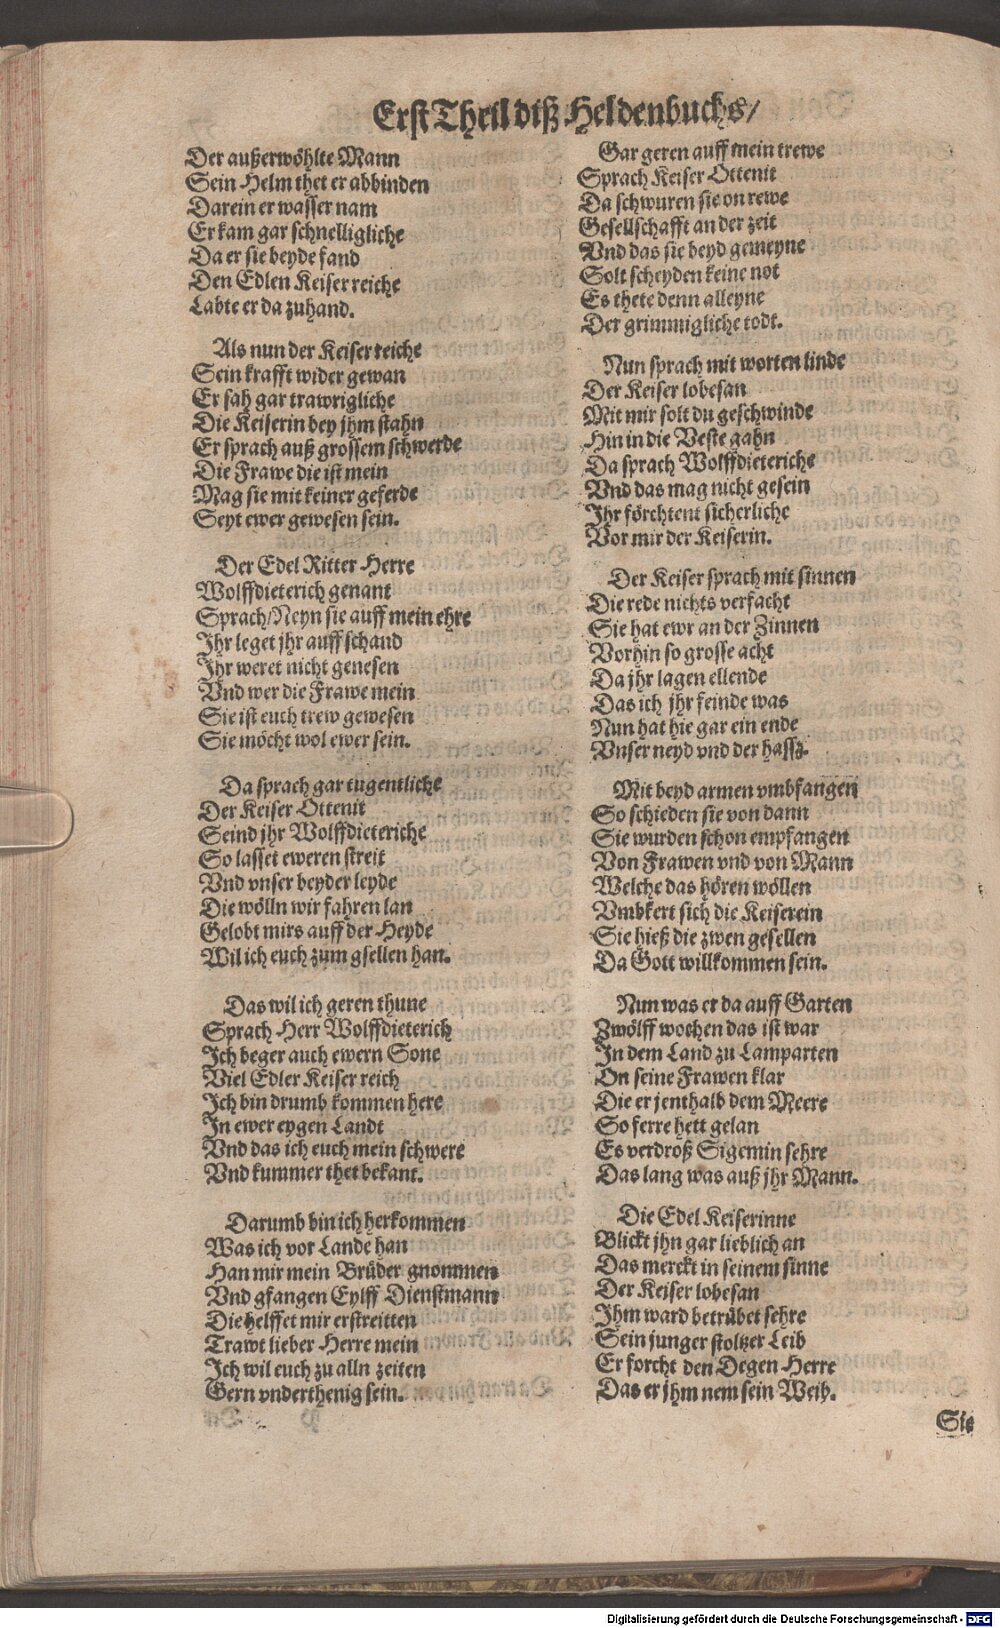 Erst Theil diß Heldenbuchs/
Der außerwöhlte Mann
Sein Helm thet er abbinden
Darein er wasser nam
Er kam gar schnelligliche
Da er sie beyde fand
Den Edlen Keiser reiche
Labte er da zuhand.
Als nun der Keiser reiche
Sein krafft wider gewan
Er sah gar trawrigliche
Die Keiserin bey jhm stahn
Er sprach auß grossem schwerde
Die Frawe die ist mein
Mag sie mit keiner geferde
Seyt ewer gewesen sein.
Der Edel Ritter Herre
Wolffdieterich genant
Sprach/Neyn sie auff mein ehre
Ihr leget jhr auff schand
Ihr weret nicht genesen
Vnd wer die Frawe mein
Sie ist euch trew gewesen
Sie möcht wol ewer sein.
Da sprach gar tugentliche
Der Keiser Ottenit
Seind jhr Wolffdieteriche
So lasset eweren streit
Vnd vnser beyder leyde
Die wölln wir fahren lan
Gelobt mirs auff der Heyde
Wil ich euch zum gsellen han.
Das wil ich geren thune
Sprach Herr Wolffdieterich
Ich beger auch ewern Sone
Viel Edler Keiser reich
Ich bin drumb kommen here
In ewer eygen Landt
Vnd das ich euch mein schwere
Vnd kummer thet bekant.
Darumb bin ich herkommen
Was ich vor Lande han
Han mir mein Brüder gnommen
Vnd gfangen Eylff Dienstmann
Die helffet mir erstreitten
Trawt lieber Herre mein
Ich wil euch zu alln zeiten
Gern vnderthenig sein.
Gar geren auff mein trewe
Sprach Keiser Ottenit
Da schwuren sie on rewe
Gesellschafft an der zeit
Vnd das sie beyd gemeyne
Solt scheyden keine not
Es thete denn alleyne
Der grimmigliche todt.
Nun sprach mit worten linde
Der Keiser lobesan
Mit mir solt du geschwinde
Hin in die Veste gahn
Da sprach Wolffdieteriche
Vnd das mag nicht gesein
Ihr förchtent sicherliche
Vor mir der Keiserin.
Der Keiser sprach mit sinnen
Die rede nichts verfacht
Sie hat ewr an der Zinnen
Vorhin so grosse acht
Da jhr lagen ellende
Das ich jhr feinde was
Nun hat hie gar ein ende
Vnser neyd vnd der hassz.
Mit beyd armen vmbfangen
So schieden sie von dann
Sie wurden schon empfangen
Von Frawen vnd von Mann
Welche das hören wöllen
Vmbkert sich die Keiserein
Sie hieß die zwen gesellen
Da Gott willkommen sein.
Nun was er da auff Garten
Zwölff wochen das ist war
In dem Land zu Lamparten
On seine Frawen klar
Die er jenthalb dem Meere
So ferre hett gelan
Es verdroß Sigemin sehre
Das lang was auß jhr Mann.
Die Edel Keiserinne
Blickt jhn gar lieblich an
Das merckt in seinem sinne
Der Keiser lobesan
Ihm ward betrübet sehre
Sein junger stoltzer Leib
Er forcht den Degen Herre
Das er jhm nem sein Weib.
Sie
Digitalisierung gefördert durch die Deutsche Forschungsgemeinschaft - DFG